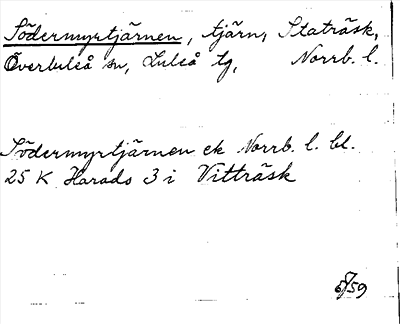 Södermyrtjärnen, tjärn, Staträsk,
Överluleå sn, Luleå tg, Norrb. l.
Södermyrtjärnen ek Norrb. l. bl.
25 K Harads 3 i Vitträsk